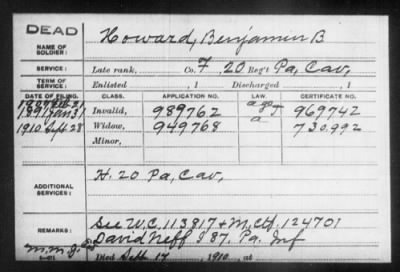 DEAD
NAME OF SOLDIER: Howard, Benjamin B
SERVICE: Late rank, Co. F, 20 Reg't Pa, Cav,
TERM OF SERVICE: Enlisted , 1 Discharged , 1
DATE OF FILING. CLASS. APPLICATION NO. LAW. CERTIFICATE NO.
1891 Jan 31 Invalid, 989762 969742
1910 Sept 28 Widow, 949768 a 730.992
Minor,
ADDITIONAL SERVICES: H. 20 Pa, Cav,
REMARKS: See W.C. 113817 + M, Ctf. 124701
David Neff I 87. Pa. Inf
Died Sept 17, 1910, at